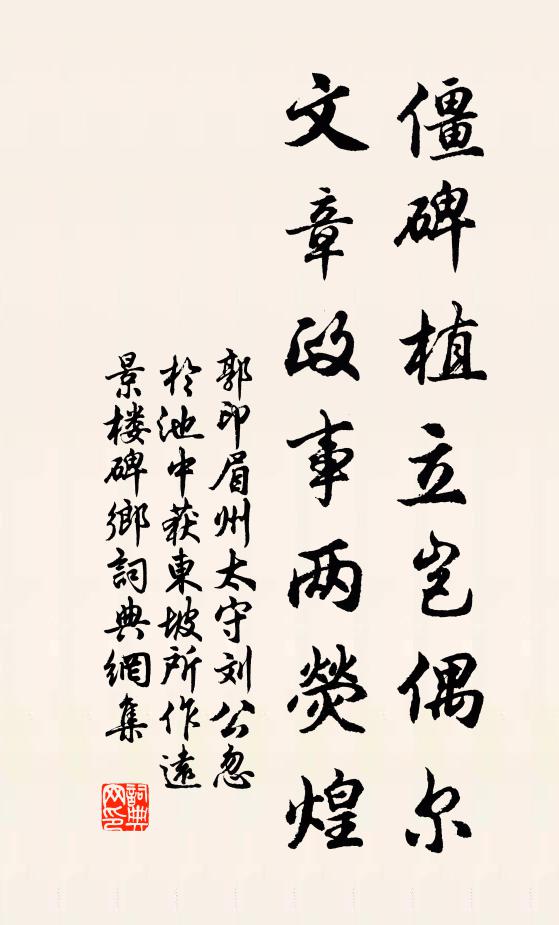 僵碑植立岂偶尔
文章政事两熒煌
郭印眉州太守刘公忽
於池中获東坡所作遠
景楼碑鄉詞典網集
詞典网印